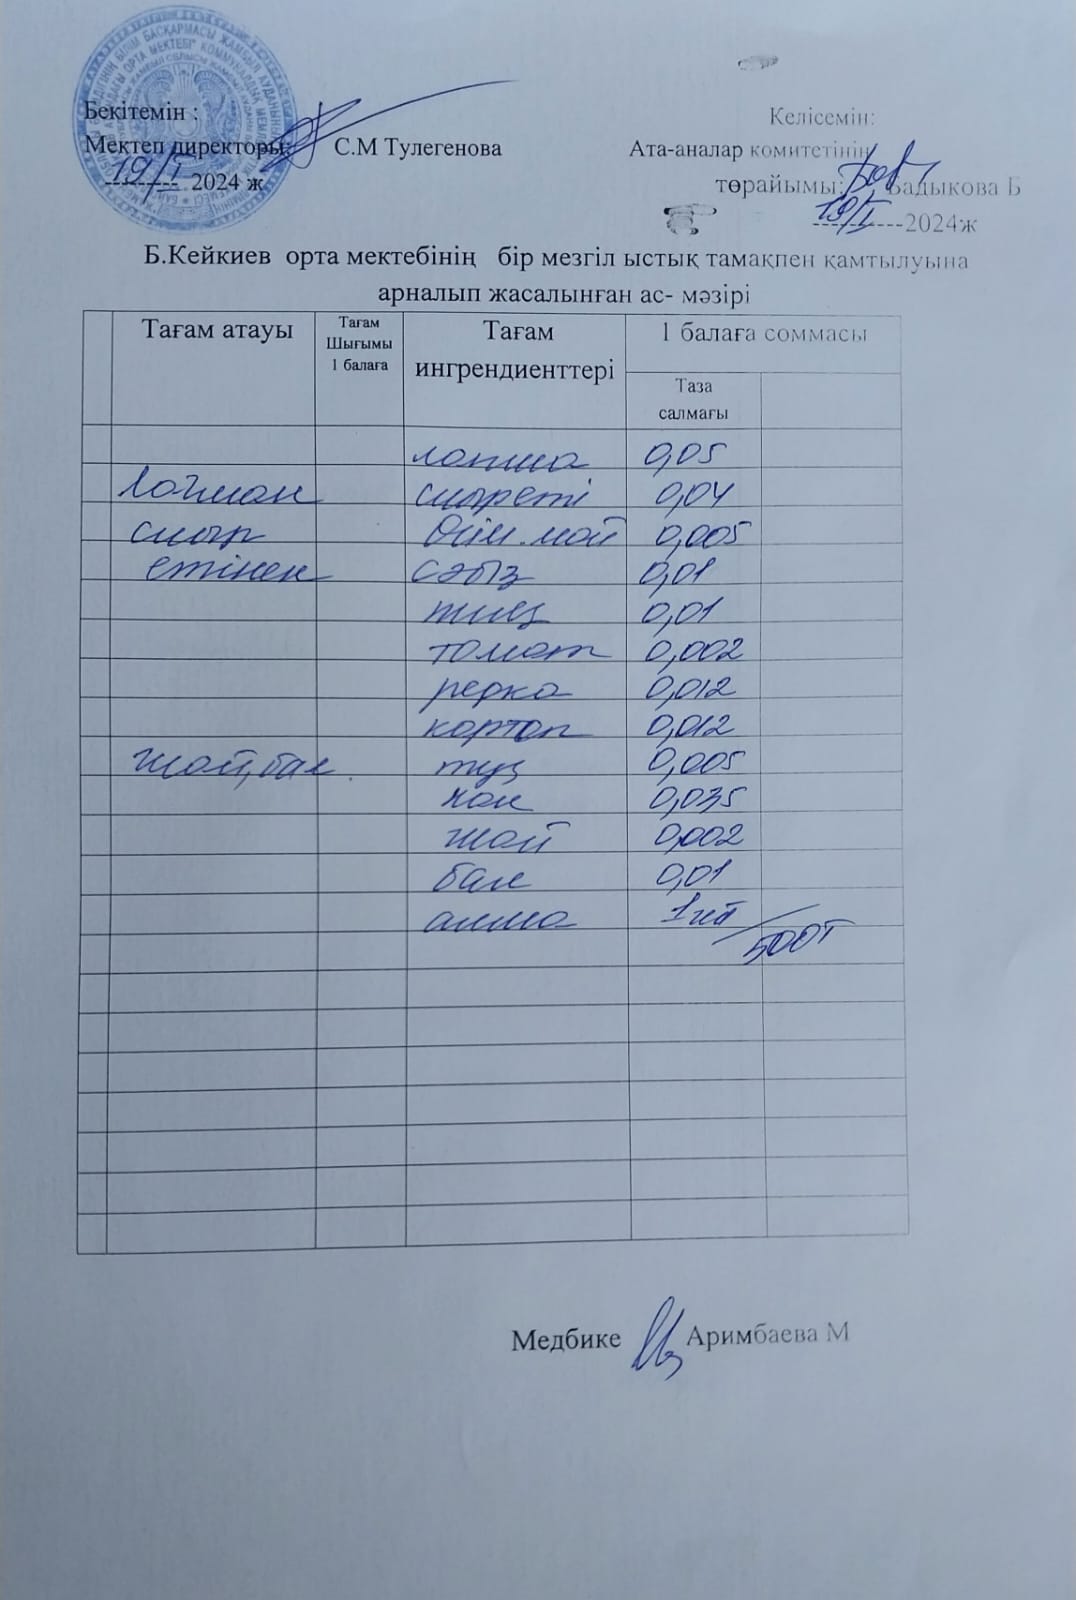 Бекітемін :
Келісемін:
Мектеп директоры: С.М Тулегенова
Ата-аналар комитетінің
19/I 2024 ж
төрайымы: Бадыкова Б
19/I 2024ж
Б.Кейкиев орта мектебінің бір мезгіл ыстық тамақпен қамтылуына
арналып жасалынған ас- мәзірі
Тағам атауы
Тағам
Шығымы
1 балаға
Тағам
ингрендиенттері
1 балаға соммасы
Таза
салмағы
лапша 0,05
Лагман сиыр еті 0,04
сиыр Өсім.май 0,005
етінен сәбіз 0,01
пияз 0,01
томат 0,002
перка 0,012
картоп 0,012
Шай, бал. тұз 0,005
нан 0,035
шай 0,002
бал 0,01
алма 1шт/500т
Медбике Аримбаева М